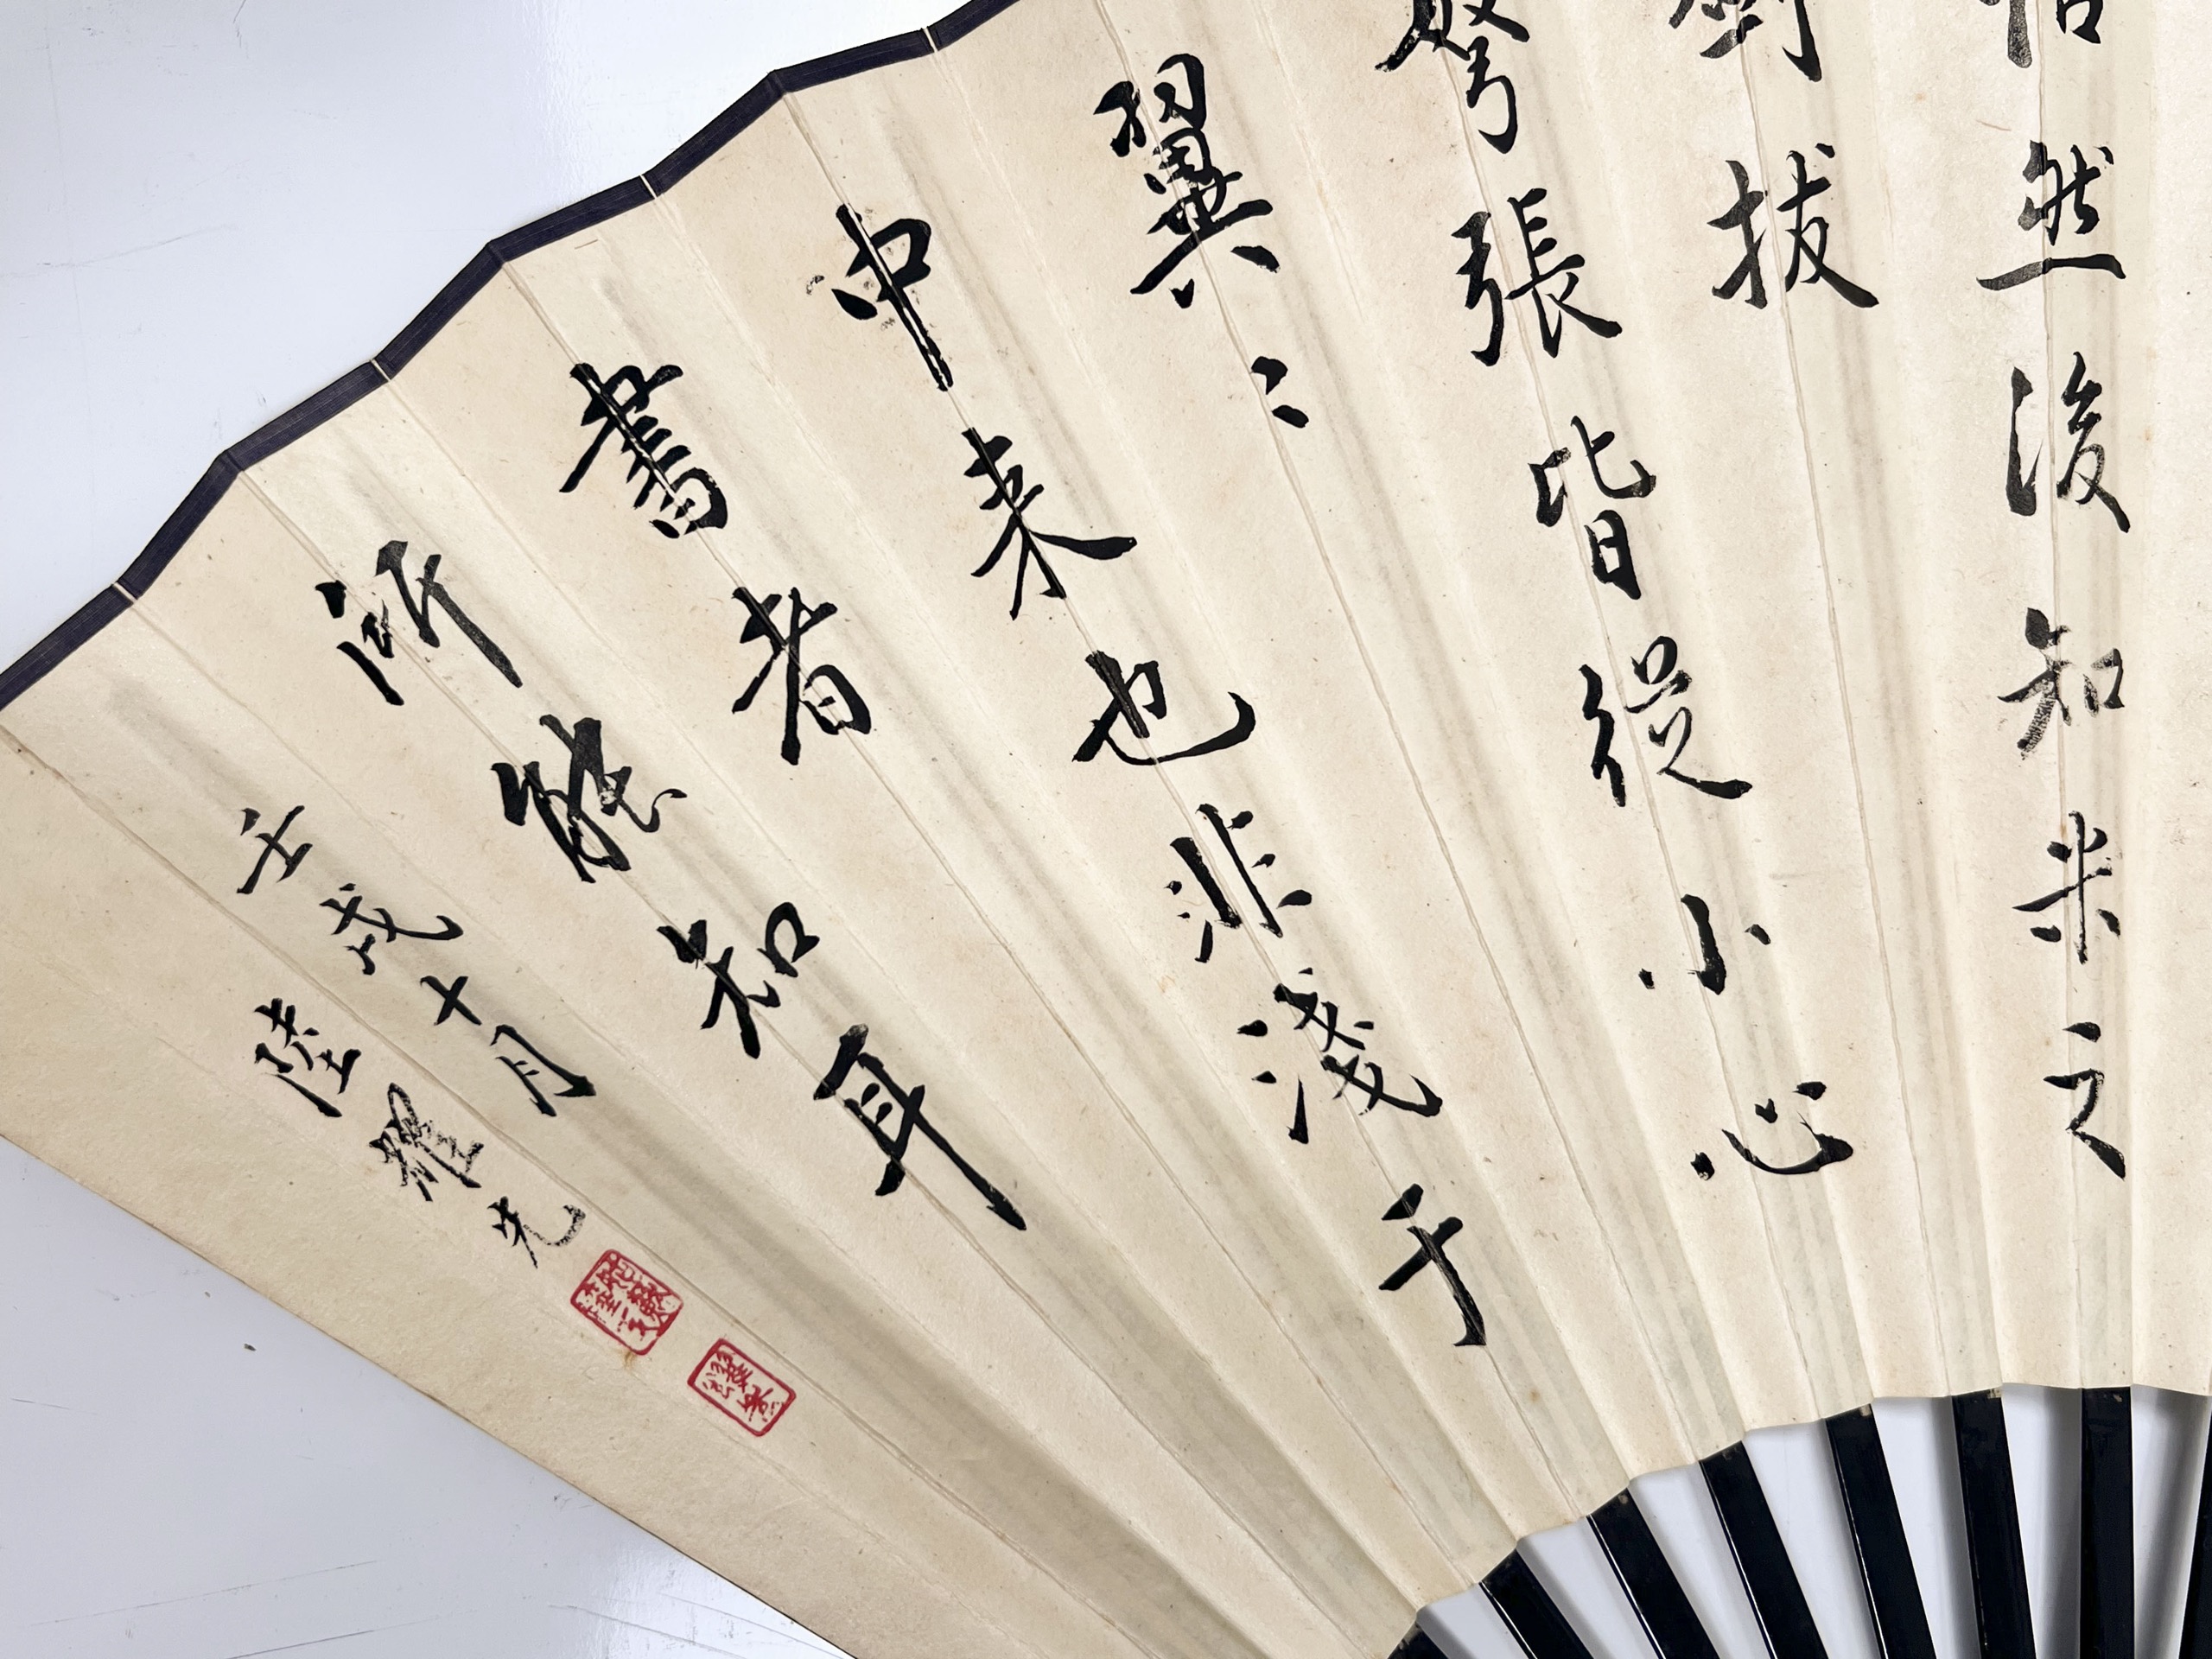 怡然後知米之
劍拔
弩張皆從小心
翼〻
中来也非淺于
書者
所能知耳
壬戌十月
陸耀先